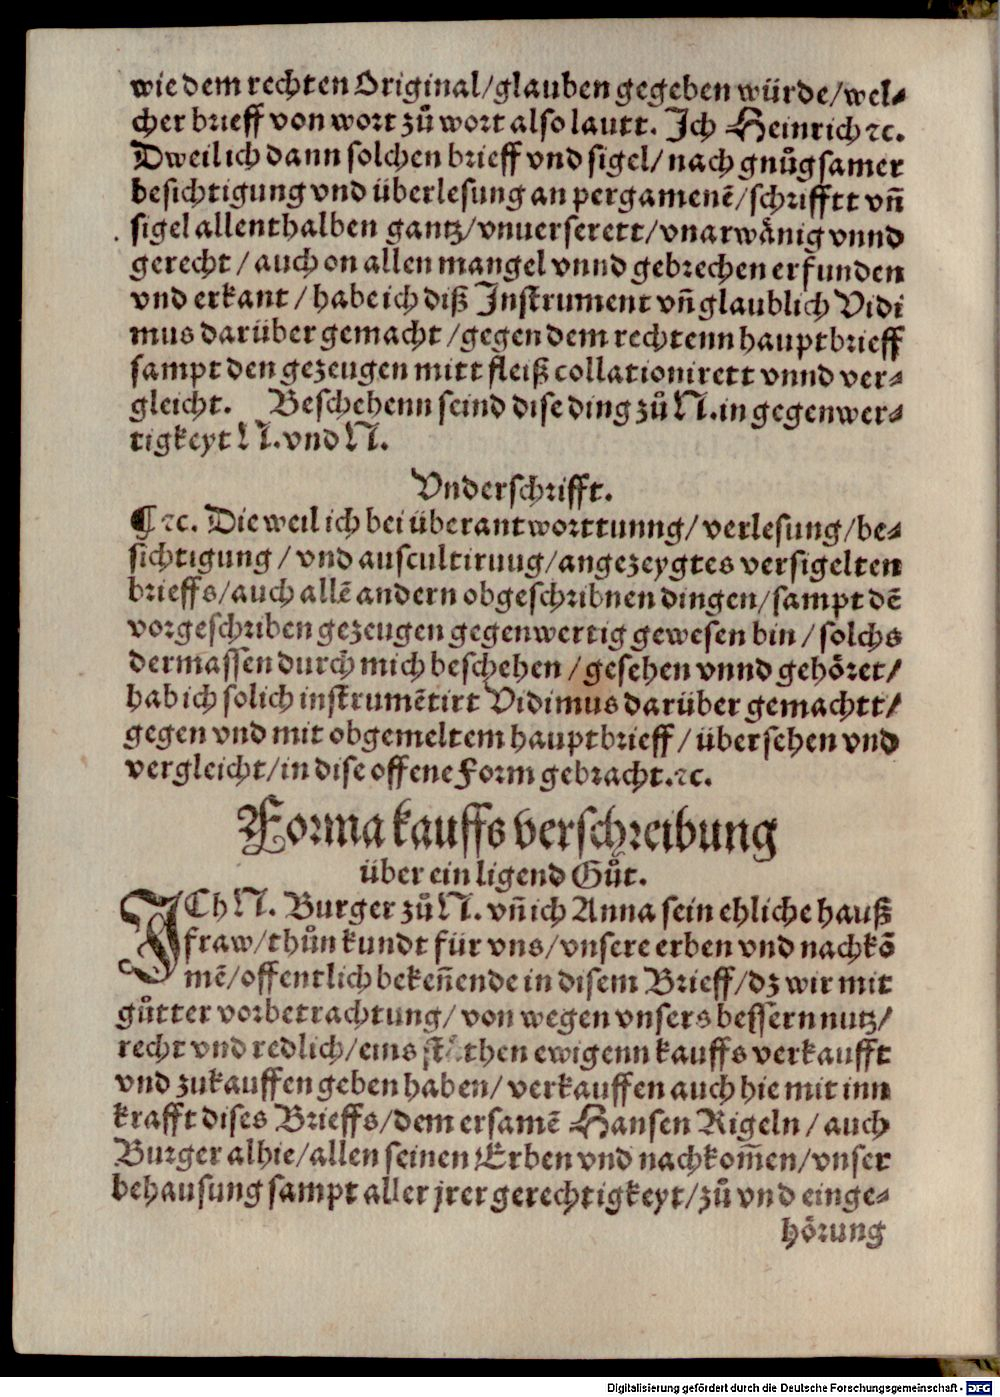 wie dem rechten Original/glauben gegeben würde/wel-
cher brieff von wort zů wort also lautt. Ich Heinrich ꝛc.
Dweil ich dann solchen brieff vnd sigel/nach gnůgsamer
besichtigung vnd überlesung an pergamenẽ/schrifftt vñ
sigel allenthalben gantz/vnuerserett/vnarwånig vnnd
gerecht/auch on allen mangel vnnd gebrechen erfunden
vnd erkant/habe ich diß Instrument vñ glaublich Vidi
mus darüber gemacht/gegen dem rechtenn hauptbrieff
sampt den gezeugen mitt fleiß collationirett vnnd ver-
gleicht. Beschehenn seind dise ding zů N. in gegenwer-
tigkeyt N. vnd N.
Vnderschrifft.
¶ ꝛc. Die weil ich bei überantworttunng/verlesung/be-
sichtigung/vnd auscultiruug/angezeygtes versigelten
brieffs/auch allẽ andern obgeschribnen dingen/sampt dẽ
vorgeschriben gezeugen gegenwertig gewesen bin/solchs
dermassen durch mich beschehen/gesehen vnnd gehöret/
hab ich solich instrumẽtirt Vidimus darüber gemachtt/
gegen vnd mit obgemeltem hauptbrieff/übersehen vnd
vergleicht/in dise offene Form gebracht.ꝛc.
Forma kauffs verschreibung
über ein ligend Gůt.
ICh N. Burger zů N. vñ ich Anna sein ehliche hauß
fraw/thůn kundt für vns/vnsere erben vnd nachkõ
mẽ/offentlich bekeñende in disem Brieff/dz wir mit
gůtter vorbetrachtung/von wegen vnsers bessern nutz/
recht vnd redlich/eins then ewigenn kauffs verkaufft
vnd zukauffen geben haben/verkauffen auch hie mit inn
krafft dises Brieffs/dem ersamẽ Hansen Rigeln/auch
Burger alhie/allen seinen Erben vnd nachkom̃en/vnser
behausung sampt aller jrer gerechtigkeyt/zů vnd einge-
hörung
Digitalisierung gefördert durch die Deutsche Forschungsgemeinschaft - DFG